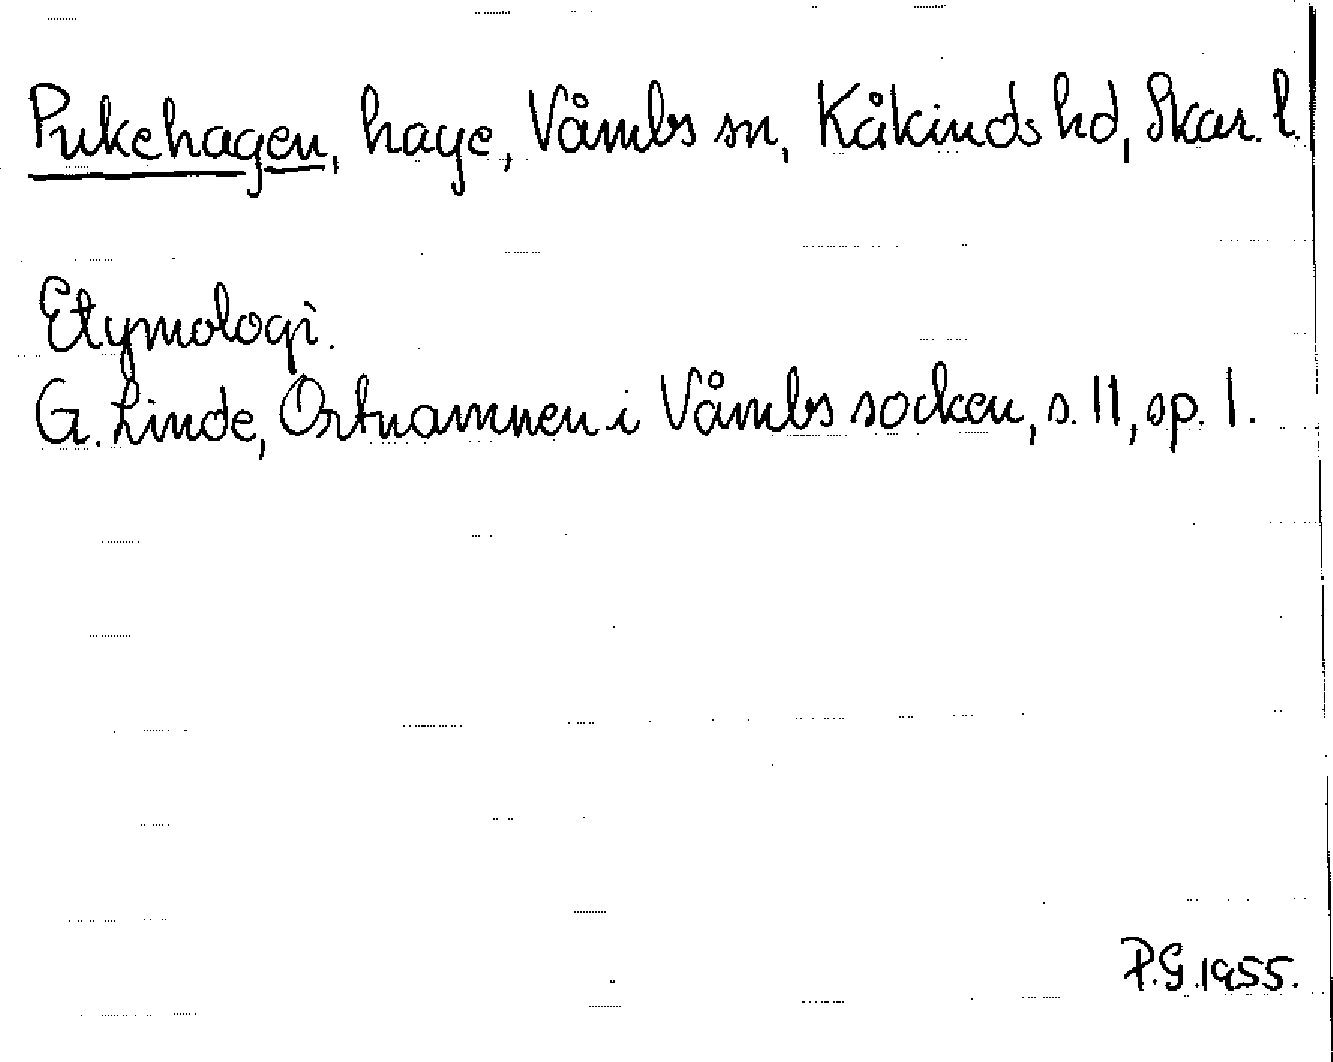 Pukehagen, hage, Våmbs sn, Kåkinds hd, Skar. l.
Etymologi.
G. Linde, Ortnamnen i Våmbs socken, s. 11, sp. 1.
P.G. 1955.